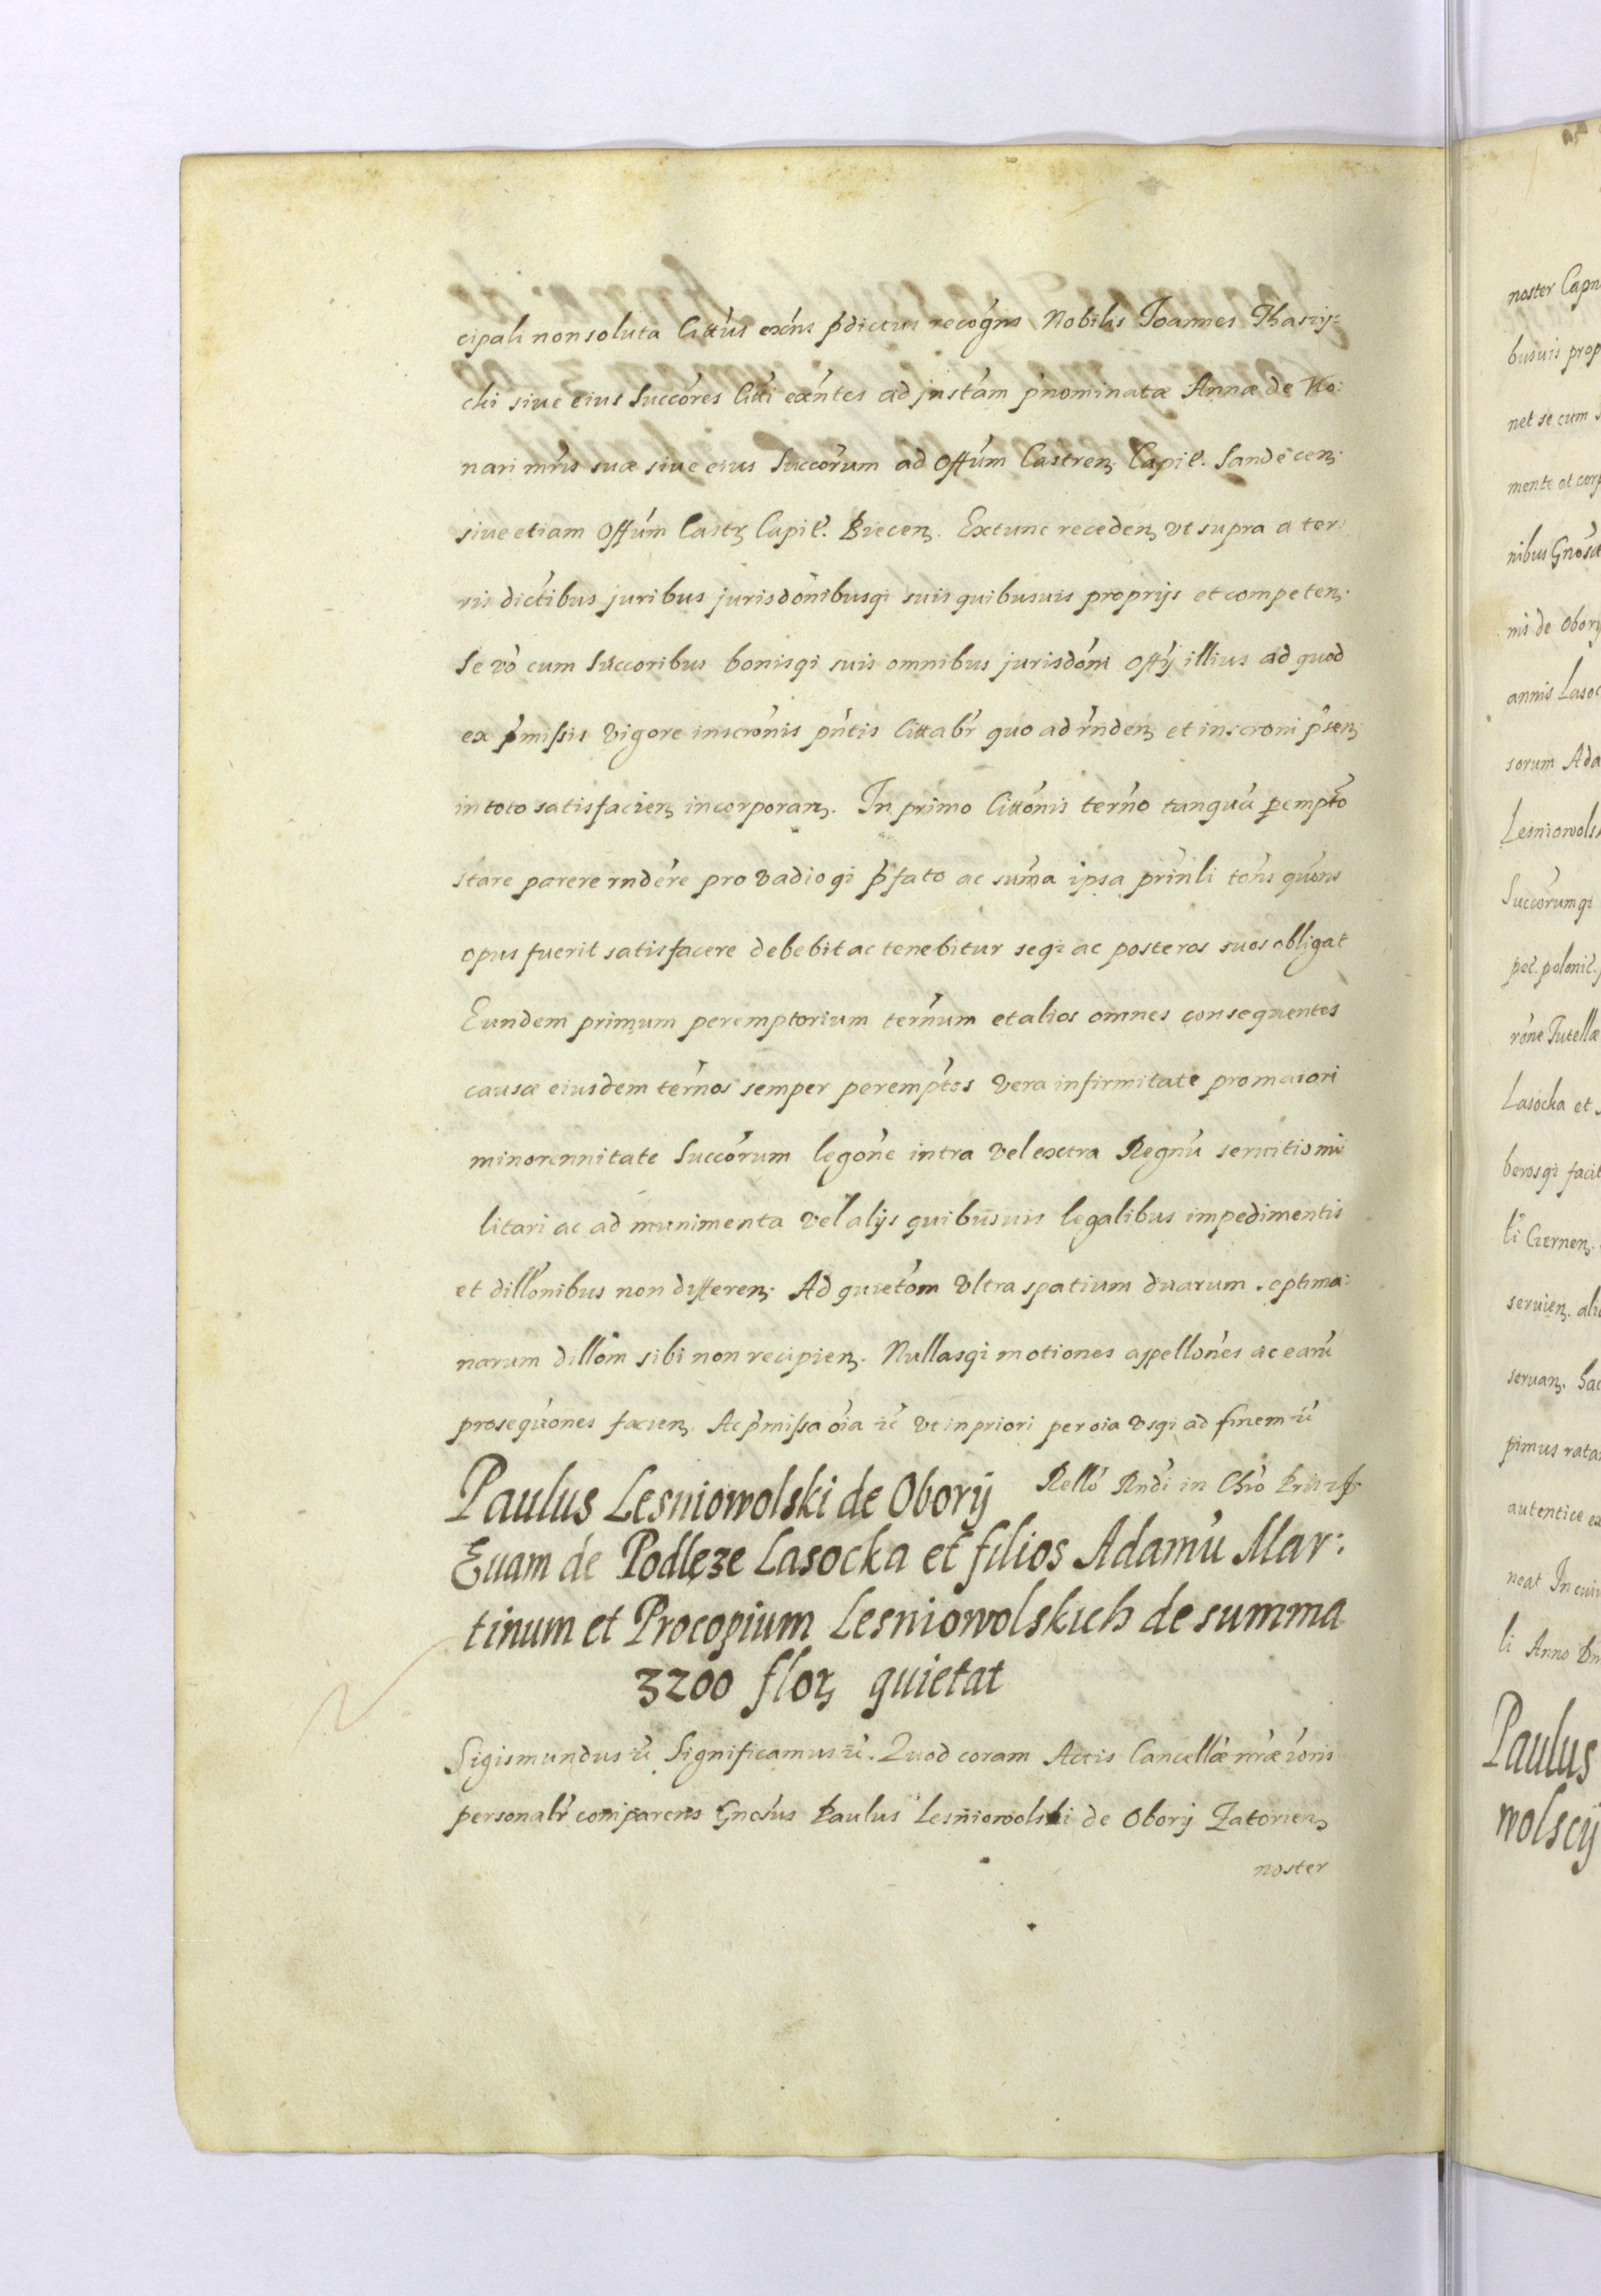 cipali non soluta Cittus exñs p̃dictus recogñs Nobilis Joannes Thaszy:
cki siue eius Succóres Citti exñtes ad jnstam p̃nominatæ Annæ de Ko:
nari mr̃is suæ siue eius Succórum ad Offúm Castren̨ Capit̃. Sandécen̨
siue etiam Offúm Castr̨ Capit̃. Biecen̨. Extunc receden̨ vt supra a ter:
ris dictibus juribus jurisdónibusqȝ suis quibusuis proprijs et competen̨
Se vó cum Succoribus bonisqȝ suis omnibus jurisdóni Offij illius ad quod
ex p̃missis vigore inscrónis pñtis Cittabr̃ quo ad r̃nden̨ et inscroni p̃sen̨
in toto satisfacien̨ incorporan̨. In primo Cittónis ter̃no tanquã perempto
stare parere r̃ndere pro vadioqȝ p̃fato ac sum̃a ipsa prin̄li tot̃ns quóns
opus fuerit satisfacere debebit ac tenebitur seqȝ ac posteros suos obligat
Eundem primum peremptorium ter̃num et alios omnes consequentes
causæ eiusdem ter̃nos semper perempt́os vera infirmitate pro maiori
minorennitate Succórum legóne intra vel extra Regnú seruitio mi
litari ac ad munimenta vel alijs quibusuis legalibus impedimentis
et dillónibus non differen̨. Ad quietóm vltra spatium duarum septima:
narum dillóm sibi non recipien̨. Nullasqȝ motiones appellónes ac earú
prosequónes facien̨. Ac p̃missa óia ꝛc̃ vt in priori per oia vsqȝ ad finem ꝛc̃
Paulus Lesniowolski de Obory Relló Rndi in Chró
Euam de Podlęze Lasocka et filios Adamú Mar:
tinum et Procopium Lesniowolskich de summa
3200 flor̨ quietat
Sigismundus ꝛc̃ Significamus ꝛc̃. Quod coram Actis Cancellæ nr̃æ
personalr̃ comparens Gnosus Paulus Lesniowolski de Obory Zatorien̨
noster
noster Capn
busuis prop
net se cum
mente et corp
nibus Gnosa
nis de Obory
annis Lasoc
sorum Ada
Lesniowols
Succórumqȝ
pet̃. polonit̃.
róne Tutellæ
Lasocka et
berosqȝ facit
li Czernen̨.
seruien̨. ali
seruan̨. hac
pimus rata
autentice ex
neat In cui
li Anno Dn
Paulus
wolscy